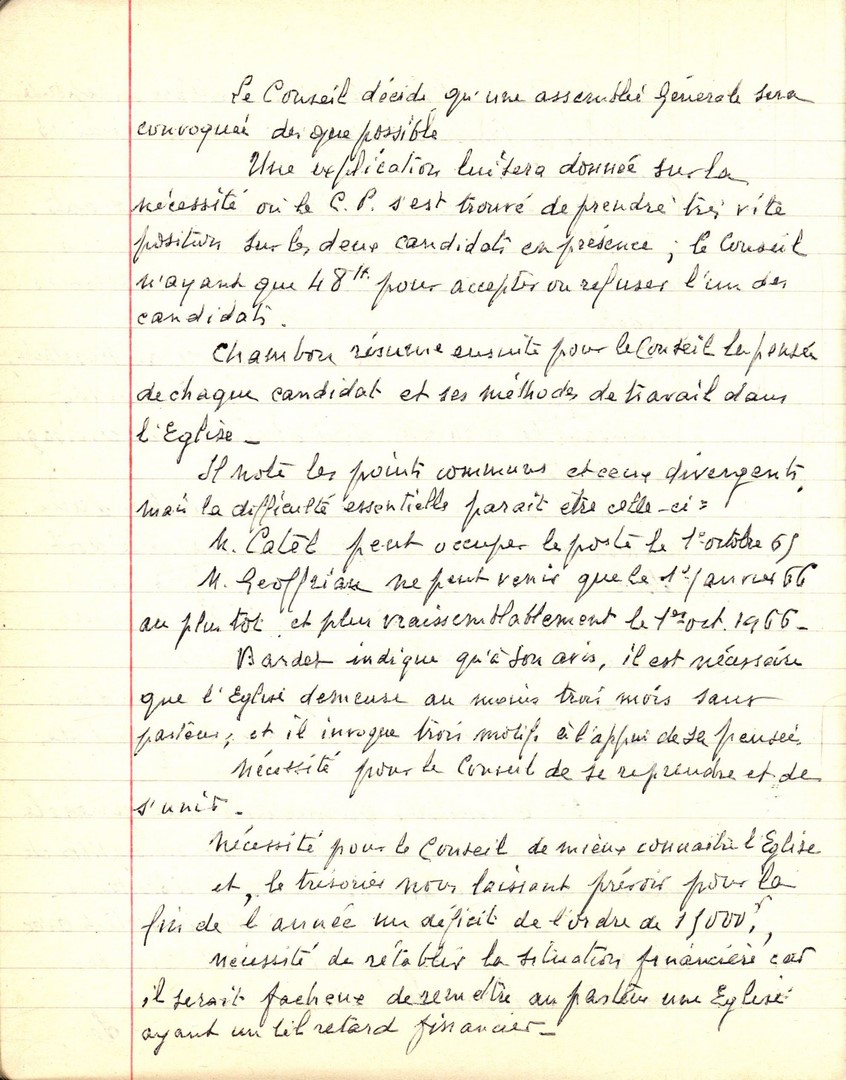 Le Conseil décide qu'une assemblée Générale sera
convoquée dès que possible
Une explication lui sera donnée sur la
nécessité où le C.P. s'est trouvé de prendre très vite
position sur les deux candidats en présence ; le Conseil
n'ayant que 48 H. pour accepter ou refuser l'un des
candidats.
Chambon résume ensuite pour le Conseil la pensée
de chaque candidat et ses méthodes de travail dans
l'Eglise _
Il note les points communs et ceux divergents,
mais la difficulté essentielle parait etre celle-ci :
M. Catel peut occuper le poste le 1er octobre 65
M. Geoffrian ne peut venir que le 1er Janvier 66
au plus tôt, et plus vraissemblablement le 1er oct. 1966 _
Bardet indique qu'à son avis, il est nécessaire
que l'Eglise demeure au moins trois mois sans
pasteur, et il invoque trois motifs à l'appui de sa pensée.
Nécessité pour le Conseil de se reprendre et de
s'unir.
Nécessité pour le Conseil de mieux connaitre l'Eglise
et, le trésorier nous laissant prévoir pour la
fin de l'année un déficit de l'ordre de 15000 F,
nécessité de rétablir la situation financière car
il serait facheux de remettre au pasteur une Eglise
ayant un tel retard financier _